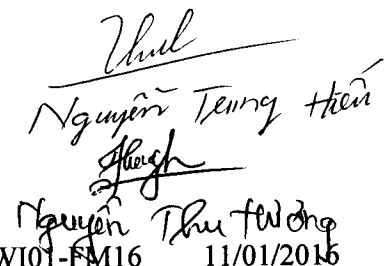 Nguyễn Trung Hiếu
Nguyễn Thu Hương
WI01-FM16 11/01/2016